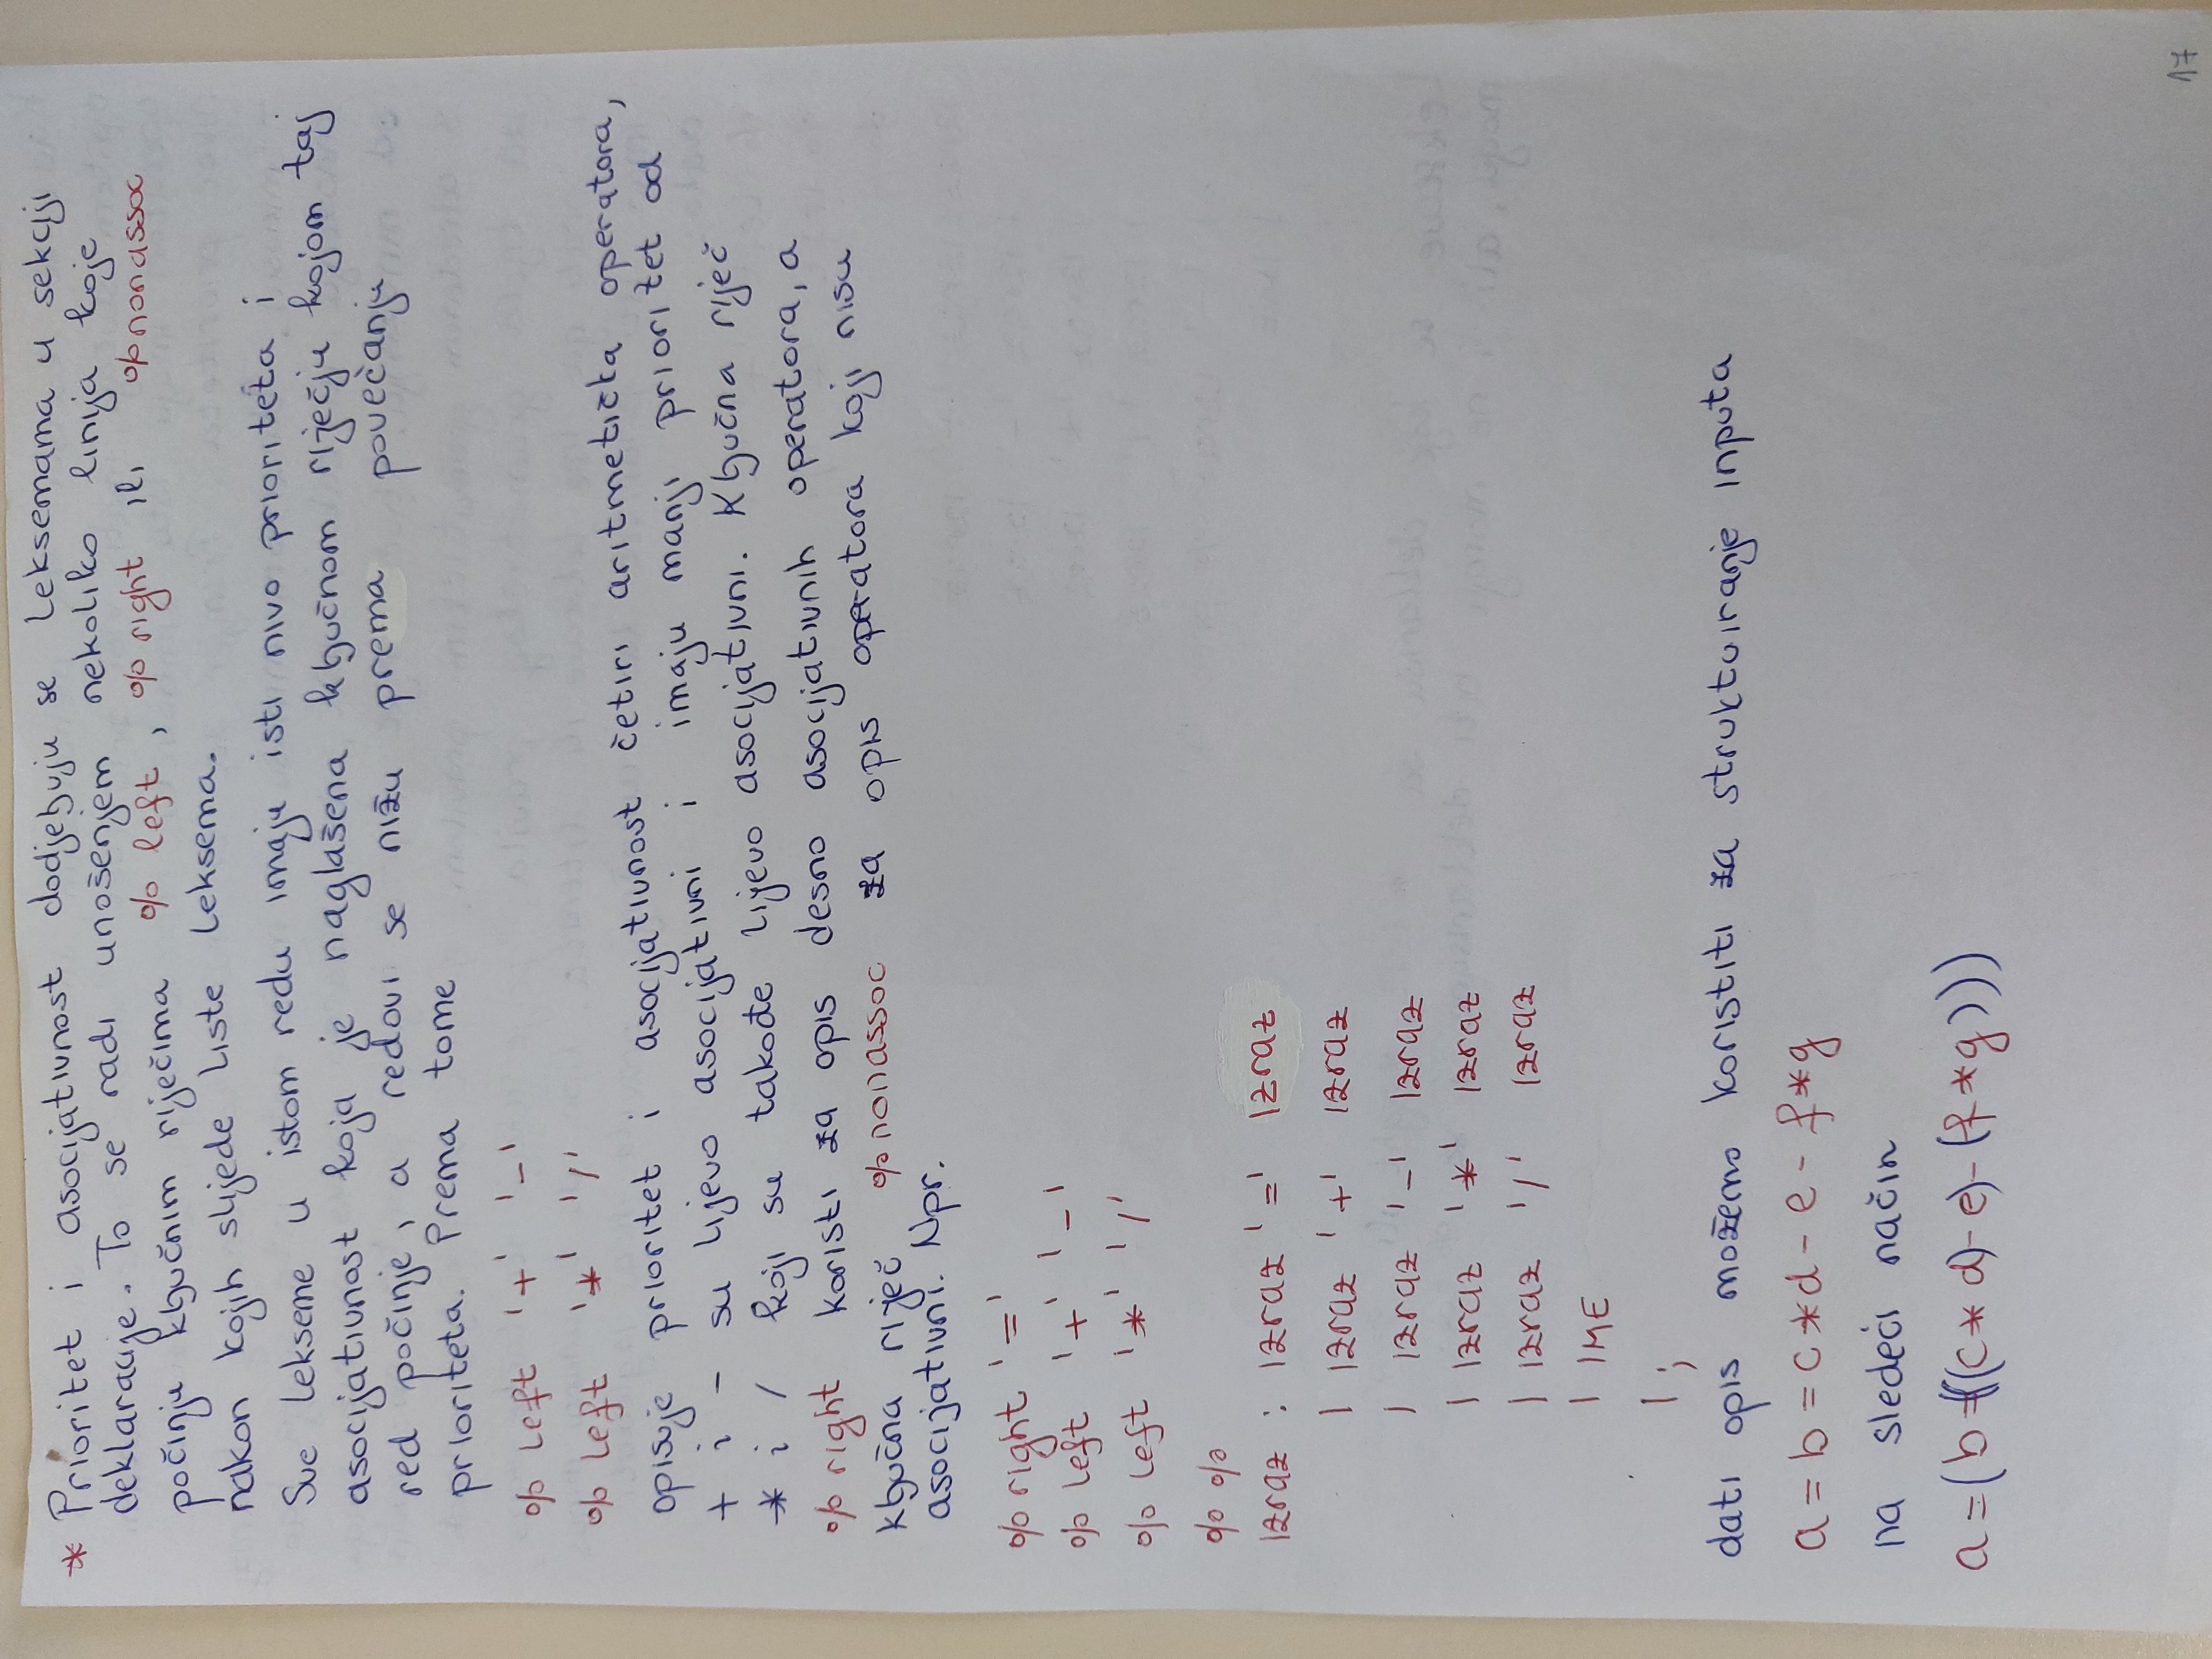 * Prioritet i asocijativnost dodjeljuju se leksemama u sekciji
deklaracije. To se radi unošenjem nekoliko linija koje
počinju ključnim riječima %left, %right ili %nonassoc
nakon kojih slijede liste leksema.
Sve lekseme u istom redu imaju isti nivo prioriteta i
asocijativnost koja je naglašena ključnom riječju kojom taj
red počinje, a redovi se nižu prema povećanju
prioriteta. Prema tome
% left '+' '-'
% left '*' '/'
opisuje prioritet i asocijativnost četiri aritmetička operatora,
+ i - su lijevo asocijativni i imaju manji prioritet od
* i / koji su takođe lijevo asocijativni. Ključna riječ
%right koristi za opis desno asocijativnih operatora, a
ključna riječ %nonassoc za opis operatora koji nisu
asocijativni. Npr.
%right '='
% left '+' '-'
% left '*' '/'
%%
izraz : izraz '=' izraz
| izraz '+' izraz
| izraz '-' izraz
| izraz '*' izraz
| izraz '/' izraz
| IME
| ;
dati opis možemo koristiti za struktuiranje inputa
a = b = c*d - e - f*g
na sledeći način
a = (b = (((c*d)-e)-(f*g)))
17